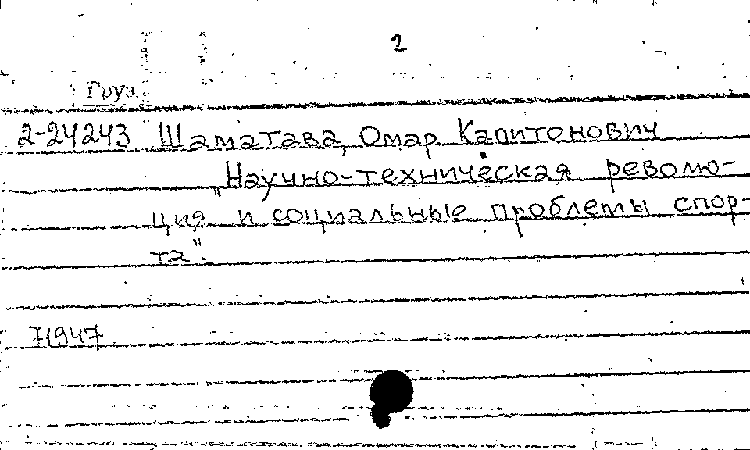 2
Груз.
2-24243 Шаматава, Омар Капитонович
„Научно-техническая револю-
ция и социальные проблемы спор-
та".
71947